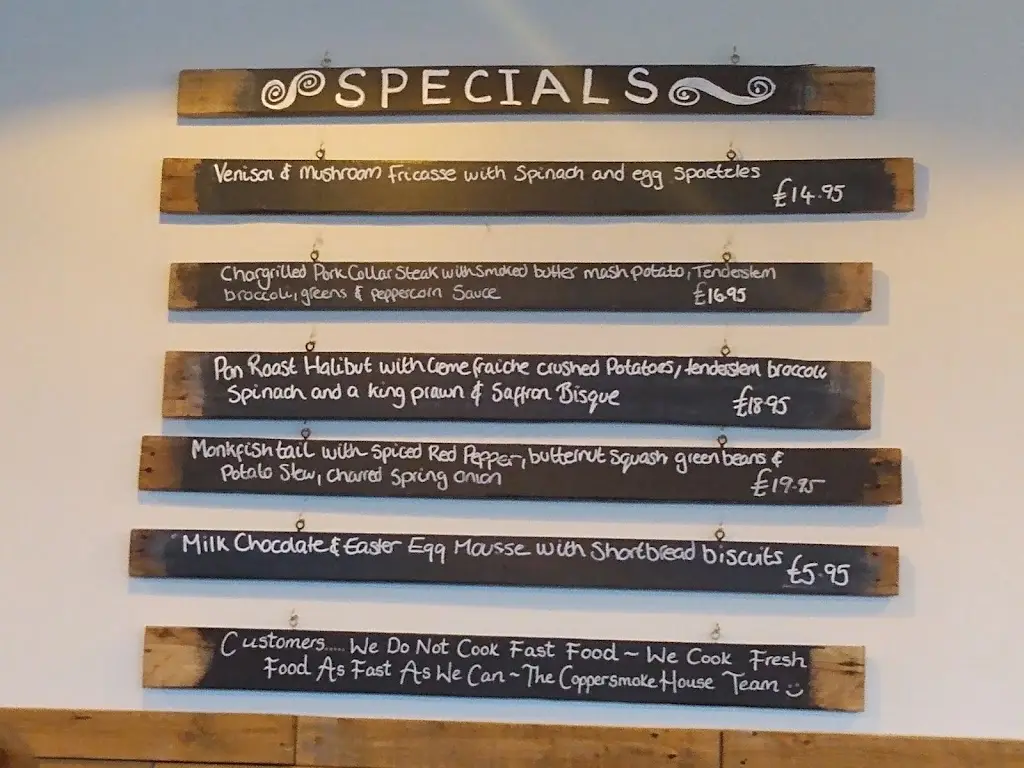 SPECIALS
Venison & Mushroom Fricasse with Spinach and egg Spaetzles
£14.95
Chargrilled Pork Collar Steak with Smoked butter mash potato, Tenderstem
broccoli, greens & peppercorn Sauce £16.95
Pan Roast Halibut with Creme fraiche crushed Potatoes, tenderstem broccoli
Spinach and a king prawn & Saffron Bisque £18.95
Monkfish tail with spiced Red Pepper, butternut Squash green beans &
Potato Stew, charred Spring onion £19.95
Milk Chocolate & Easter Egg Mousse with Shortbread biscuits
£5.95
Customers..... We Do Not Cook Fast Food ~ We Cook Fresh
Food As Fast As We Can ~ The Coppersmoke House Team